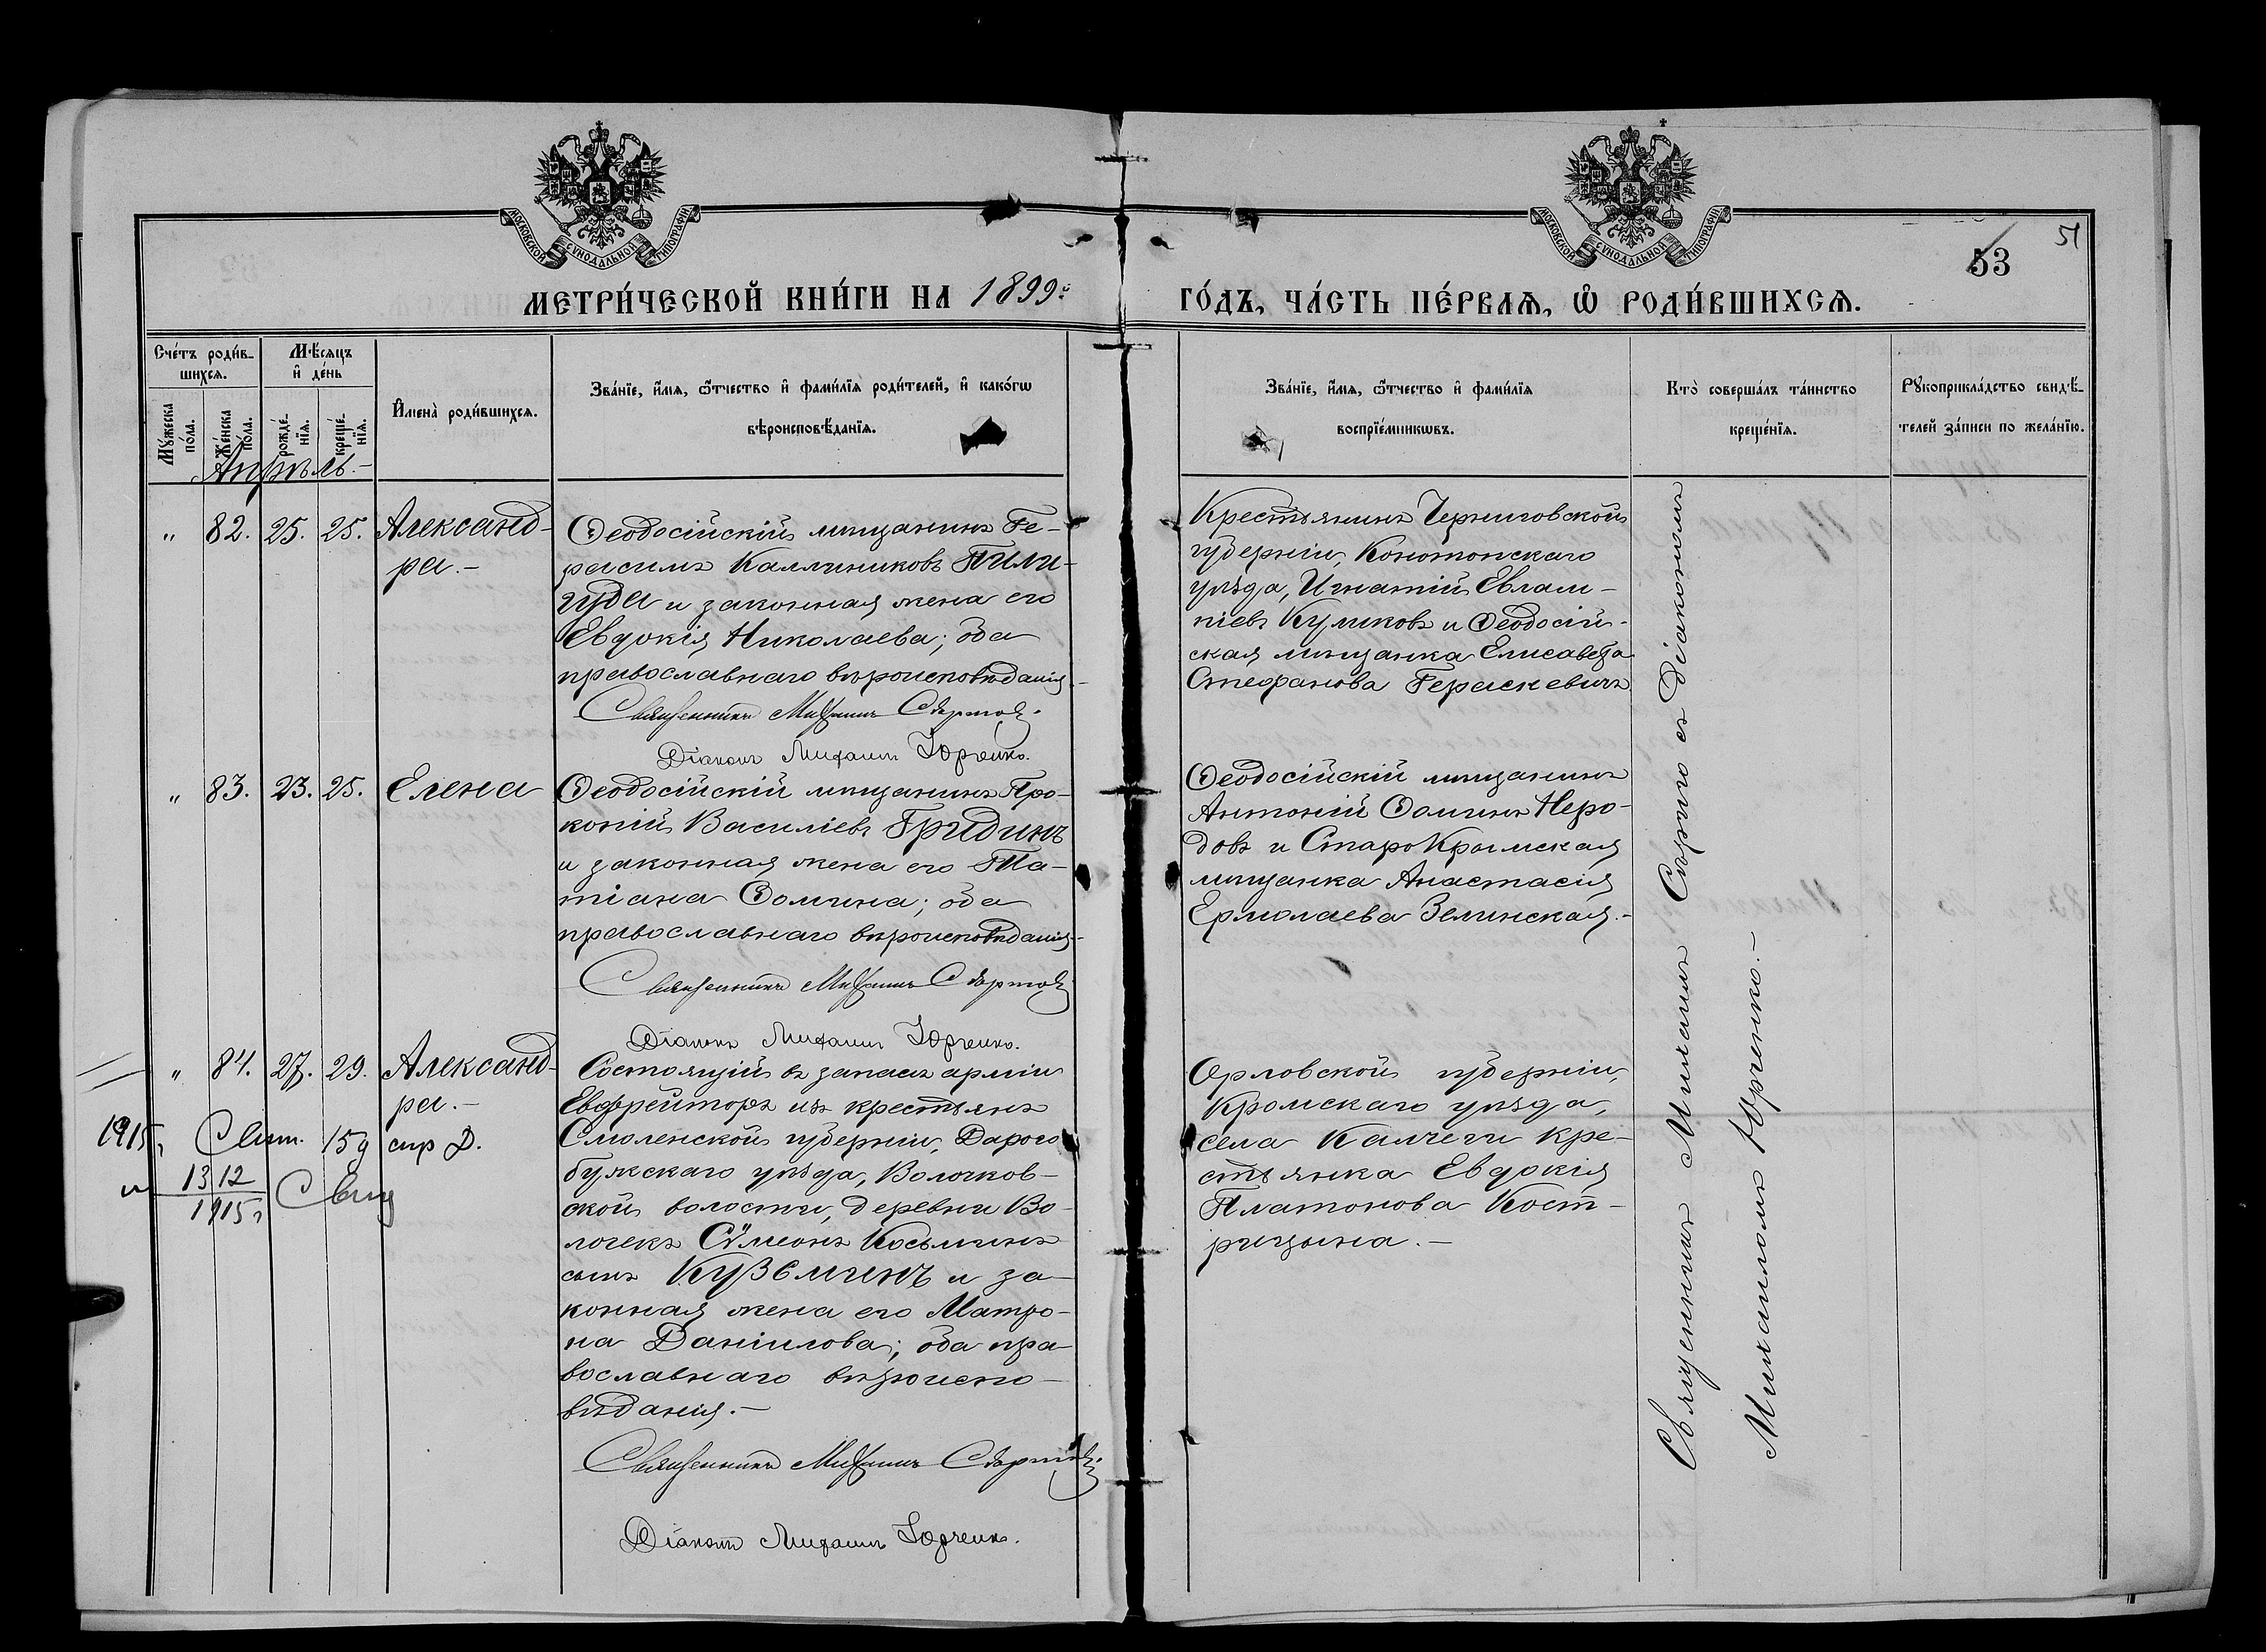 МОСКОВСКОЙ СѴНОДАЛЬНОЙ ТИПОГРАФІИ
МОСКОВСКОЙ СѴНОДАЛЬНОЙ ТИПОГРАФІИ
51
53
МЕТРИ́ЧЕСКОЙ КНИ́ГИ НА 1899й
ГО́ДЪ, ЧА́СТЬ ПЕ́РВАѦ, Ѿ РОДИ́ВШИХСѦ.
Сче́тъ роди́в-
шихсѧ.
Мѣ́сяцъ
и҆ де́нь
Мꙋ́жеска
по́ла.
Же́нска
по́ла.
рожде́-
нїѧ.
креще́-
нїѧ.
И҆мена̀ роди́вшихсѧ.
Зва́нїе, и҆́мѧ, ѻ҆́тчество и҆ фами́лїѧ роди́телей, и҆ како́гѡ
вѣроисповѣ́данїѧ.
Зва́нїе, и҆́мѧ, ѻ҆́тчество и҆ фами́лїѧ
воспрїе́мникѡвъ.
Кто̀ соверша́лъ та́инство
креще́нїѧ.
Рꙋкоприкла́дство свидѣ́-
телей за́писи по жела́нїю.
Апрѣль.-
„ 82. 25. 25. Александ-
ра.-
Ѳеодосійскій мѣщанинъ Ге-
расимъ Каллиниковъ Пили-
гуда и законная жена его
Евдокія Николаева; оба
православнаго вѣроисповѣданія.-
Священникъ Михаилъ
Діаконъ Михаилъ Юрченко.
Крестьянинъ Черниговской
губерніи, Конотопскаго
уѣзда, Игнатій Евлам-
піевъ Куликовъ и Ѳеодосій-
ская мѣщанка Елисавета
Стефанова Гераскевичъ
„ 83. 23. 25. Елена
Ѳеодосійскій мѣщанинъ Про-
копій Василіевъ Гридинъ
и законная жена его Та-
тіана Ѳомина; оба
православнаго вѣроисповѣданія.-
Священникъ Михаилъ
Діаконъ Михаилъ Юрченко.
Ѳеодосійскій мѣщанинъ
Антоній Ѳоминъ Неро-
довъ и СтароКрымская
мѣщанка Анастасія
Ермолаева Зелинская.-
„ 84. 27. 29. Александ-
ра.-
1915г 159 стр Д.
и 1312
1915г
Состоящій въ запасѣ арміи
Евфрейторъ изъ крестьянъ
Смоленской губерніи, Дорого
бужскаго уѣзда, Волочков-
ской волости, деревни Во-
лочекъ Сѵмеонъ Косьминъ
сынъ Кузьминъ и за-
конная жена его Матро-
на Даніилова; оба пра-
вославнаго вѣроиспо-
вѣданія.-
Священникъ Михаилъ
Діаконъ Михаилъ Юрченко.
Орловской губерніи,
Кромскаго уѣзда,
села Калчеги кре-
стьянка Евдокія
Платонова Кост-
рицына.-
Священникъ Михаилъ съ Діакономъ
Михаиломъ Юрченко.-